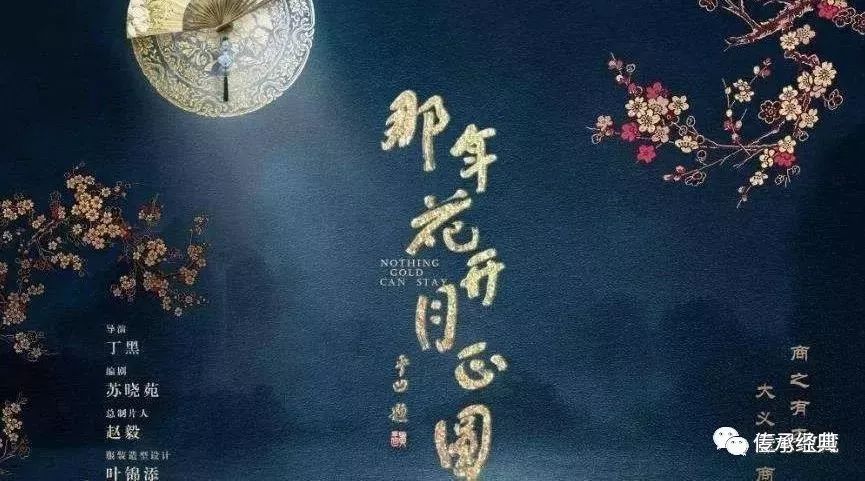 那年花开月正圆
NOTHING
GOLD
CAN STAY
平凹 题
导演
丁黑
编剧
苏晓苑
总制片人
赵毅
服装造型设计
叶锦添
商之有
大义
商
传承经典